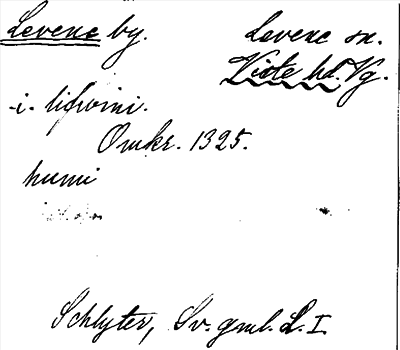 Levene by. Levene sn.
Viste hd. Vg.
i. lifwini.
Omkr. 1325.
humi
Schlyter, Sv. gml. L. I